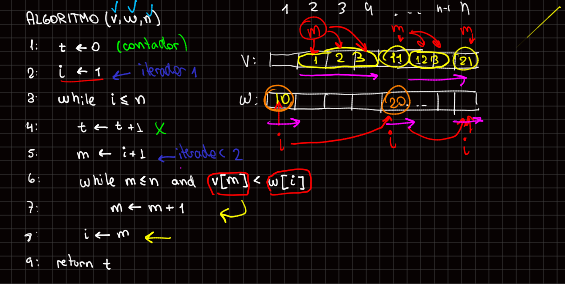 ALGORITMO (v, w, n)
1: t ← 0 (contador)
2: i ← 1 ← iterador 1
3: while i ≤ n
4: t ← t + 1 X
5: m ← i + 1 ← iterador 2
6: while m ≤ n and v[m] < w[i]
7: m ← m + 1
8: i ← m ←
9: return t
1 2 3 4 ... n-1 n
m m m
V: 1 2 3 11 12 13 21
W: 10 20 ...
i i i